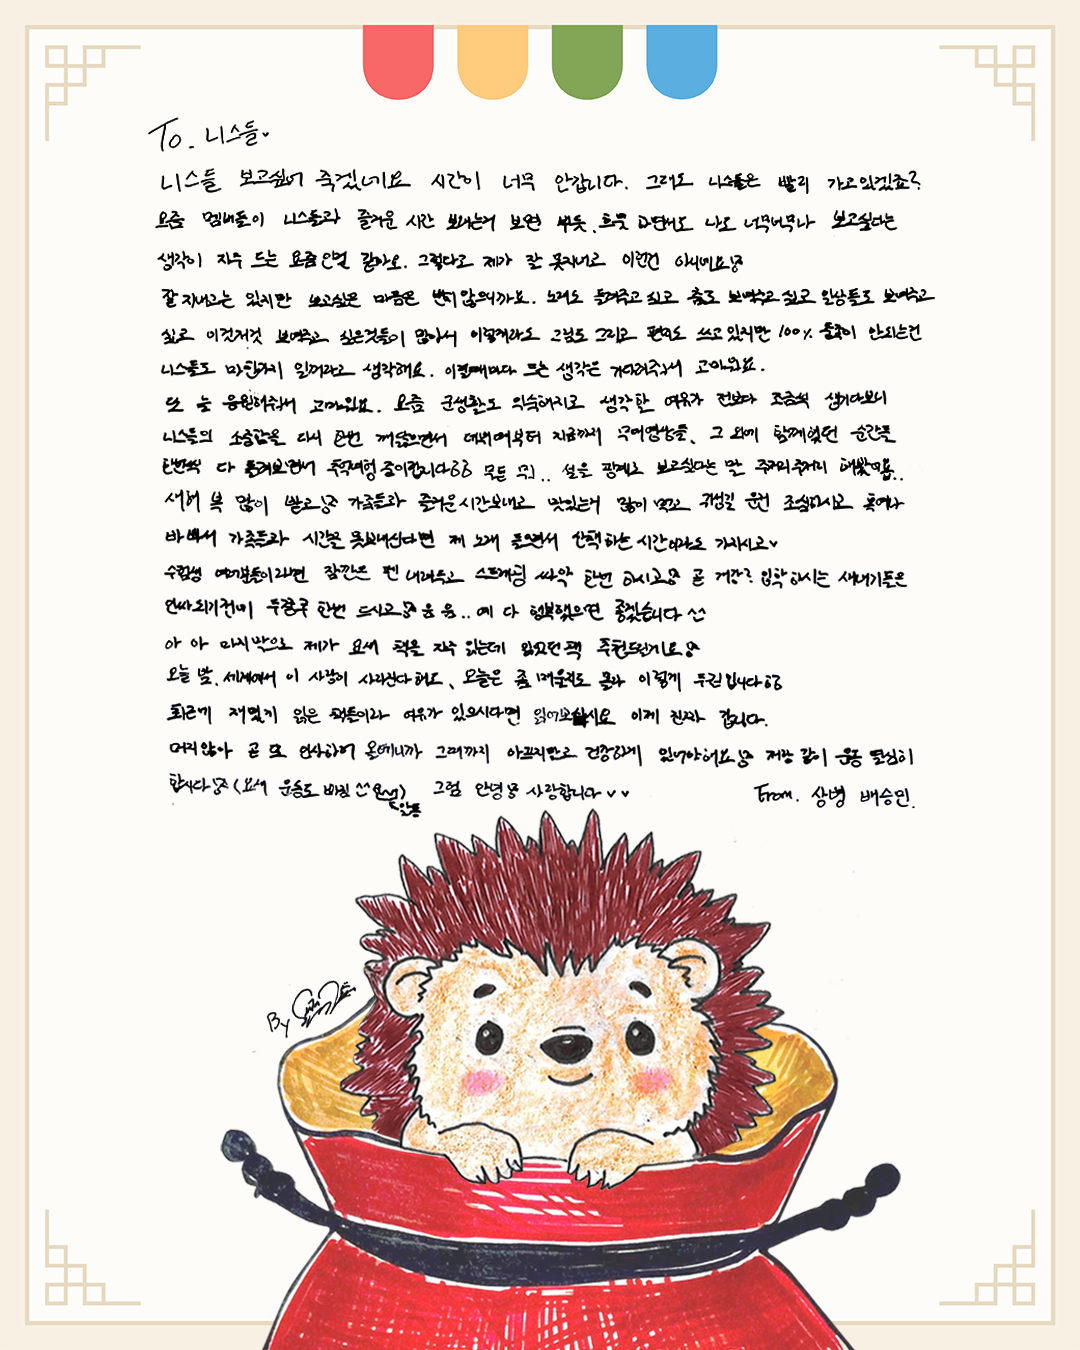 To. 니스들♥
니스들 보고싶어 죽겠네요 시간이 너무 안갑니다. 그래도 니스들은 빨리 가고있겠죠?
요즘 멤버들이 니스들과 즐거운 시간 보내는거 보면 뿌듯, 흐뭇 하면서도 나도 너무너무나 보고싶다는
생각이 자주 드는 요즘인것 같아요. 그렇다고 제가 잘 못지내고 이런건 아니에요
잘 지내고는 있지만 보고싶은 마음은 변치 않으니까요. 노래도 들려주고 싶고 춤도 보여주고 싶고 일상들도 보여주고
싶고 이것저것 보여주고 싶은것들이 많아서 이렇게라도 그림도 그리고 편지도 쓰고 있지만 100% 충족이 안되는건
니스들도 마찬가지 일꺼라고 생각해요. 이럴때마다 드는 생각은 기다려줘서 고마워요.
또 늘 응원해줘서 고마워요. 요즘 군생활도 익숙해지고 생각할 여유가 전보다 조금씩 생기다보니
니스들의 소중함을 다시 한번 깨닫으면서 데뷔때부터 지금까지 무대영상들, 그 외에 함께했던 순간들
한번씩 다 돌려보면서 추억여행 중이랍니다 모든 뭐.. 설을 핑계로 보고싶다는 말 주저리주저리 해봤어용..
새해 복 많이 받고 가족들과 즐거운시간보내고 맛있는거 많이 먹고 귀성길 운전 조심하시고 혹여나
바빠서 가족들과 시간을 못보내신다면 제 노래 들으면서 산책하는 시간이라도 가지시고♥
수험생 여러분들이라면 잠깐은 펜 내려두고 스트레칭 싸악 한번 하시고 곧 개강? 입학 하시는 새내기들은
인싸되기전에 두쫀쿠 한번 드시고 음 음.. 예 다 행복했으면 좋겠습니다 ^^
아 아 마지막으로 제가 요새 책을 자주 읽는데 읽었던책 추천드린거요
오늘 밤, 세계에서 이 사랑이 사라진다 해도, 오늘은 좀 매울지도 몰라 이렇게 두권 입니다
최근에 재밌게 읽은 책들이라 여유가 있으시다면 읽어보십시요 이게 진짜 갑니다.
머지않아 곧 또 인사하러 올테니까 그때까지 아프지만고 건강하게 있어야해요 저랑 같이 운동 열심히
합시다 (요새 운동도 빠짐 ^^ ) 그럼 안녕 사랑합니다 ♥ ♥
From. 상병 배승민.
By